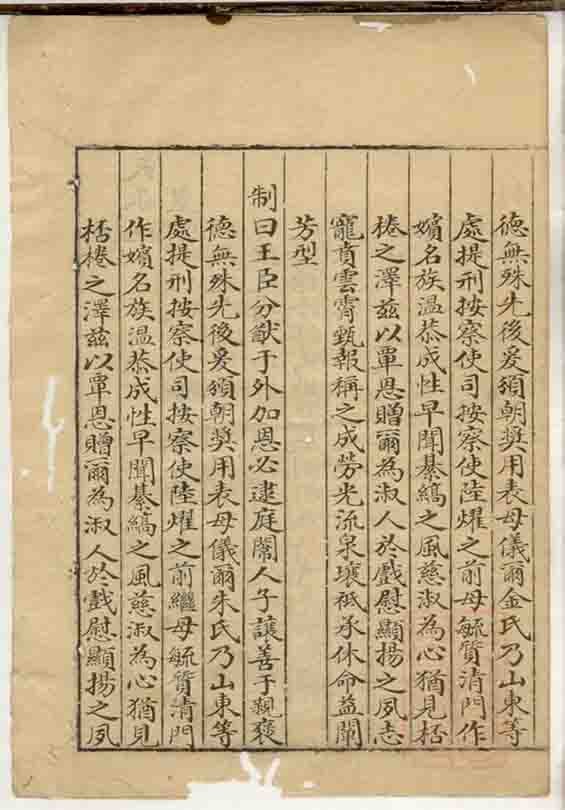 德無殊先後爰頒朝獎用表母儀爾金氏乃山東等
處提刑按察使司按察使陸燿之前母毓質清門作
嬪名族溫恭成性早聞綦縞之風慈淑為心猶見桮
棬之澤茲以覃恩贈爾為淑人於戲慰顯揚之夙志
寵賁雲霄甄報稱之成勞光流泉壤祗承休命益闡
芳型
制曰王臣分猷于外加恩必逮庭闈人子讓善于親褒
德無殊先後爰頒朝獎用表母儀爾朱氏乃山東等
處提刑按察使司按察使陸燿之前繼母毓質清門
作嬪名族溫恭成性早聞綦縞之風慈淑為心猶見
桮棬之澤茲以覃恩贈爾為淑人於戲慰顯揚之夙